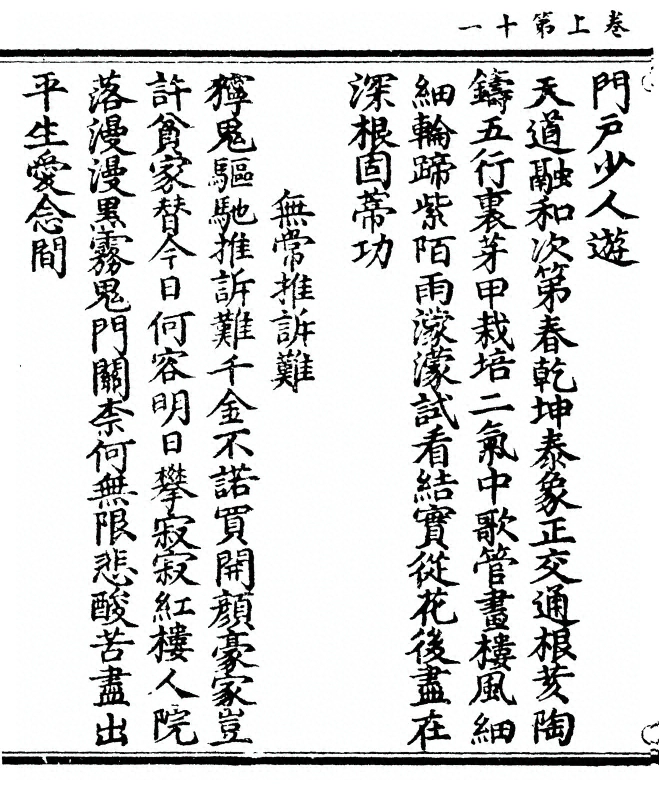 卷上第十一
門戶少人遊
天道融和次第春乾坤泰象正交通根荄陶
鑄五行裏芽甲栽培二氣中歌管畫樓風細
細輪蹄紫陌雨濛濛試看結實從花後盡在
深根固蔕功
無常推訴難
獰鬼驅馳推訴難千金不諾買開顔豪家豈
許貧家替今日何容明日攀寂寂紅樓人院
落漫漫黑霧鬼門關柰何無限悲酸苦盡出
平生愛念間